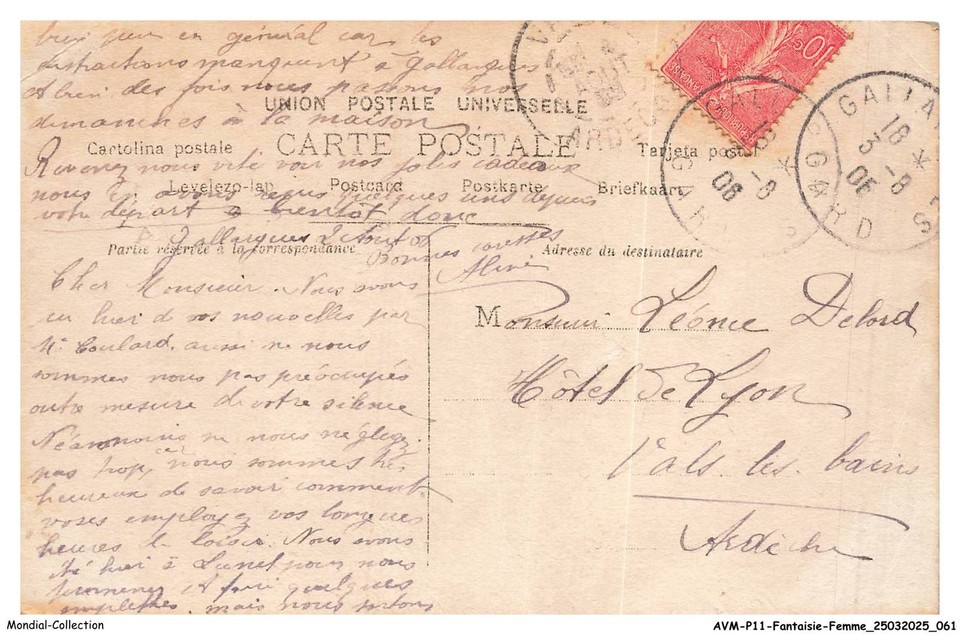 bien peu en général car les
distractions manquent à Gallargues
A bien des fois nous passons nos
dimanches à la maison
UNION POSTALE UNIVERSELLE
CARTE POSTALE
Cartolina postale
Tarjeta postal
Revenez nous vite voir nos jolis cadeaux
Levelezo-lap
Postcard
Postkarte
Briefkaart
nous en avons reçus quelques uns depuis
votre départ à bientôt donc
Gallargues 2 Aout 06
Bonnes caresses
Aline
Partie réservée à la correspondance
Adresse du destinataire
Cher Monsieur. Nous avons
eu hier de vos nouvelles par
Mr Coulard. aussi ne nous
sommes nous pas préoccupés
outre mesure de votre silence
Néanmoins ne nous négligez
pas trop, car nous sommes très
heureux de savoir comment
vous employez vos longues
heures de loisir. Nous avons
été hier à Lunel pour nous
promener et faire quelques
emplettes, mais nous sortons
Monsieur Léonce Delord
Hôtel de Lyon
Vals les bains
Ardèche
10c
ARDECHE
GALLA
18
3 -8
06
GARD
GALLAR
18
3 -8
06
GARD
Mondial-Collection
AVM-P11-Fantaisie-Femme_25032025_061